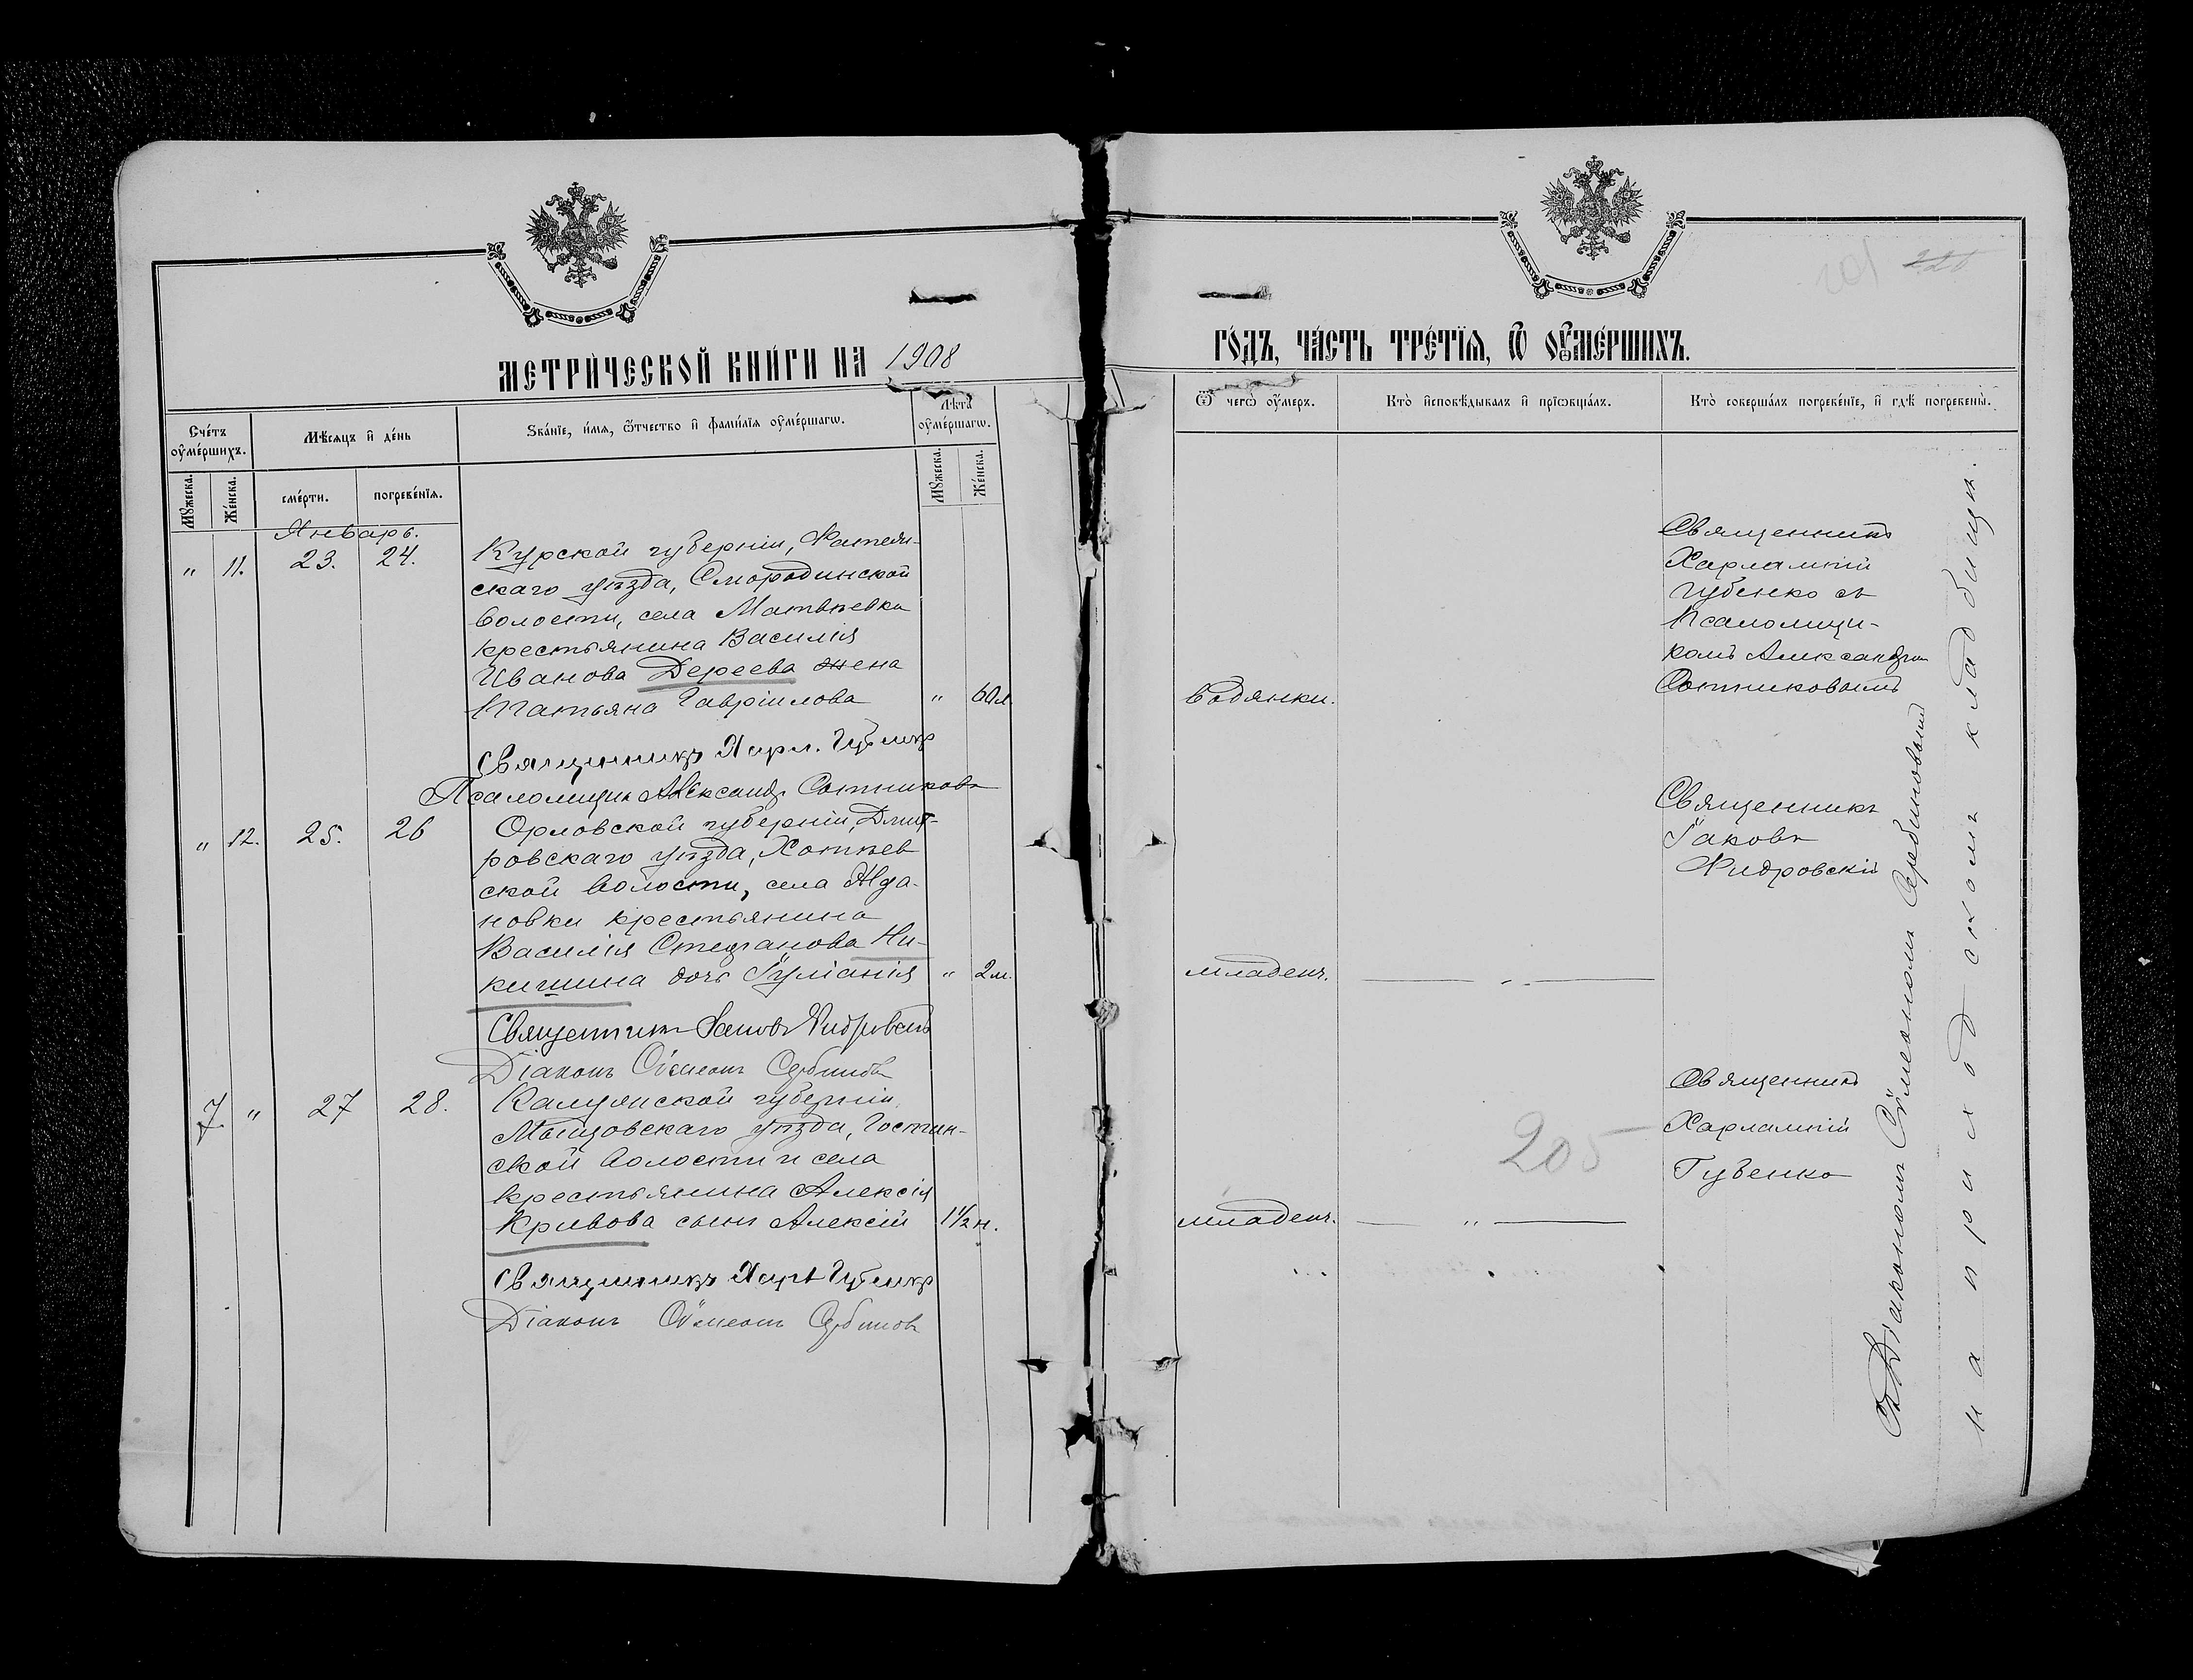 МЕТРИ́ЧЕСКОЙ КНИ́ГИ НА 1908
ГО́ДЪ, ЧА́СТЬ ТРЕ́ТЇѦ, Ѡ ОУ҆МЕ́РШИХЪ.
Сче́тъ оу҆ме́ршихъ.
Мѣ́сѧцъ и҆ де́нь
Зва́нїе, и҆́мѧ, ѻ҆́тчество и҆ фами́лїѧ оу҆ме́ршагѡ.
Лѣ́та оу҆ме́ршагѡ.
Мꙋ́жеска.
Же́нска.
сме́рти.
погребе́нїѧ.
Мꙋ́жеска.
Же́нска.
Ѿ чегѡ̀ оу҆́меръ.
Кто̀ и҆сповѣ́дывалъ и҆ прїѡбща́лъ.
Кто̀ соверша́лъ погребе́нїе, и҆ гдѣ̀ погребены̀.
Январь.
" 11. 23. 24. Курской губерніи, Фатеж-
скаго уѣзда, Смородинской
волости, села Матвѣевки
крестьянина Василія
Иванова Дереева жена
Татьяна Гавріилова " 60 л. водянки.
Священникъ
Харлампій
Губенко съ
Псаломщи-
комъ Александромъ
Сотниковымъ
Священникъ Харл. Губенко
Псаломщикъ Александр Сотниковъ
" 12. 25. 26 Орловской губерніи, Дмит-
ровскаго уѣзда, Хотѣев
ской волости, села Жда-
новки крестьянина
Василія Стефанова Ни-
кишина дочь Іуліанія " 2 м. младенч. — " —
Священникъ
Іаковъ
Фидровскій
Священникъ Іаковъ Фидровскій
Діаконъ Сѵмеонъ Сербиновъ
7 " 27 28. Калужской губерніи
Мещовскаго уѣзда, Гостин-
ской волости и села
крестьянина Алексія
Кривова сынъ Алексій 1½ н. младенч. — " —
205
Священникъ
Харлампій
Губенко
Священникъ Харл Губенко
Діаконъ Сѵмеонъ Сербиновъ
Съ Діакономъ Сѵмеономъ Сербиновымъ
на приходскомъ кладбищѣ.